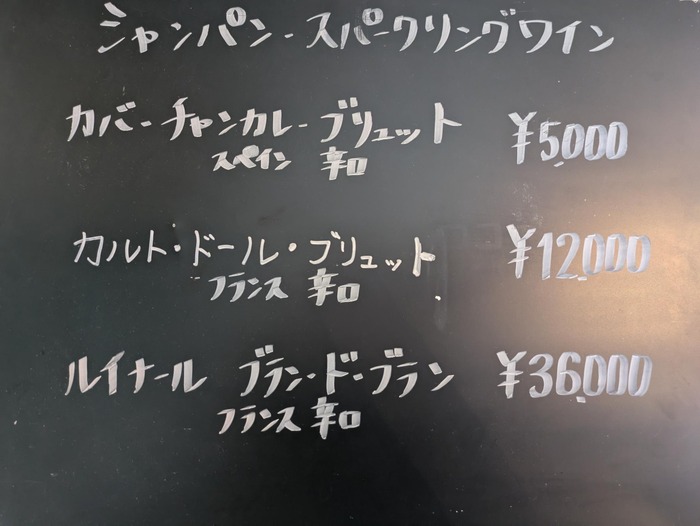 シャンパン・スパークリングワイン
カバ・チャンカレ・ブリュット ¥5,000
スペイン 辛口
カルト・ドール・ブリュット ¥12,000
フランス 辛口
ルイナール ブラン・ド・ブラン ¥36,000
フランス 辛口